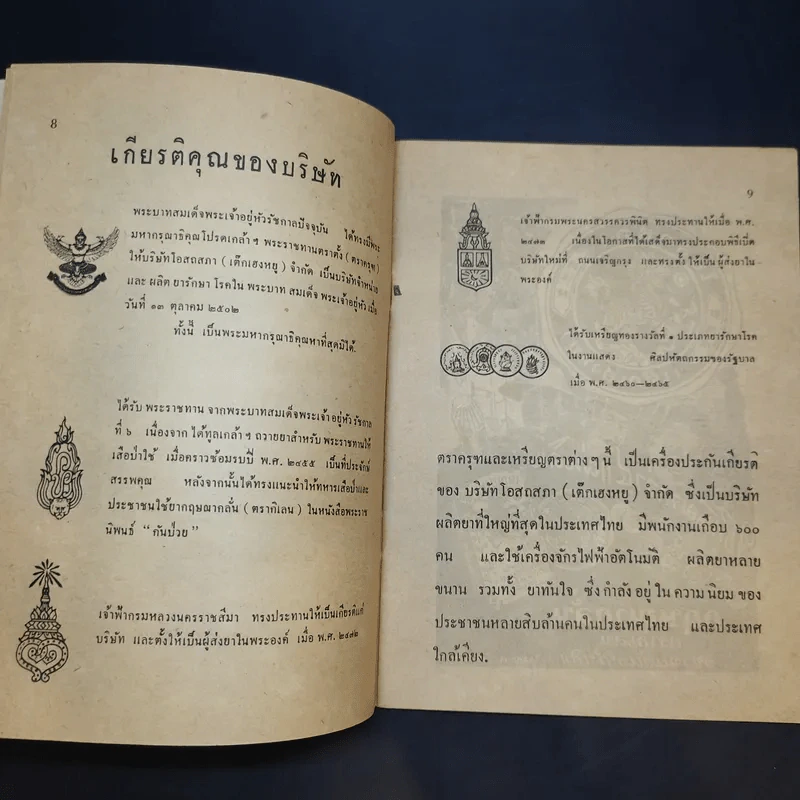 8
เกียรติคุณของบริษัท
พระบาทสมเด็จพระเจ้าอยู่หัวรัชกาลปัจจุบัน ได้ทรงมีพระ
มหากรุณาธิคุณโปรดเกล้า ฯ พระราชทานตราตั้ง (ตราครุฑ)
ให้บริษัทโอสถสภา (เต๊กเฮงหยู) จำกัด เป็นบริษัทจำหน่าย
และ ผลิต ยารักษา โรคใน พระบาท สมเด็จ พระเจ้าอยู่หัว เมื่อ
วันที่ ๑๓ ตุลาคม ๒๕๐๒
ทั้งนี้ เป็นพระมหากรุณาธิคุณหาที่สุดมิได้.
ได้รับ พระราชทาน จากพระบาทสมเด็จพระเจ้าอยู่หัว รัชกาล
ที่ ๖ เนื่องจาก ได้ทูลเกล้า ฯ ถวายยาสำหรับ พระราชทานให้
เสือป่าใช้ เมื่อคราวซ้อมรบปี พ.ศ. ๒๔๕๕ เป็นที่ประจักษ์
สรรพคุณ หลังจากนั้นได้ทรงแนะนำให้ทหารเสือป่าและ
ประชาชนใช้ยากฤษณากลั่น (ตรากิเลน) ในหนังสือพระราช
นิพนธ์ “กันป่วย”
เจ้าฟ้ากรมหลวงนครราชสีมา ทรงประทานให้เป็นเกียรติแก่
บริษัท และตั้งให้เป็นผู้ส่งยาในพระองค์ เมื่อ พ.ศ. ๒๔๗๒
9
เจ้าฟ้ากรมพระนครสวรรควรพินิต ทรงประทานให้เมื่อ พ.ศ.
๒๔๗๓ เนื่องในโอกาสที่ได้เสด็จมาทรงประกอบพิธีเปิด
บริษัทใหม่ที่ ถนนเจริญกรุง และทรงตั้ง ให้เป็น ผู้ส่งยาใน
พระองค์
ได้รับเหรียญทองรางวัลที่ ๑ ประเภทยารักษาโรค
ในงานแสดง ศิลปหัตถกรรมของรัฐบาล
เมื่อ พ.ศ. ๒๔๖๐—๒๔๖๕
ตราครุฑและเหรียญตราต่าง ๆ นี้ เป็นเครื่องประกันเกียรติ
ของ บริษัทโอสถสภา (เต๊กเฮงหยู) จำกัด ซึ่งเป็นบริษัท
ผลิตยาที่ใหญ่ที่สุดในประเทศไทย มีพนักงานเกือบ ๖๐๐
คน และใช้เครื่องจักรไฟฟ้าอัตโนมัติ ผลิตยาหลาย
ขนาน รวมทั้ง ยาทันใจ ซึ่ง กำลัง อยู่ ใน ความ นิยม ของ
ประชาชนหลายสิบล้านคนในประเทศไทย และประเทศ
ใกล้เคียง.